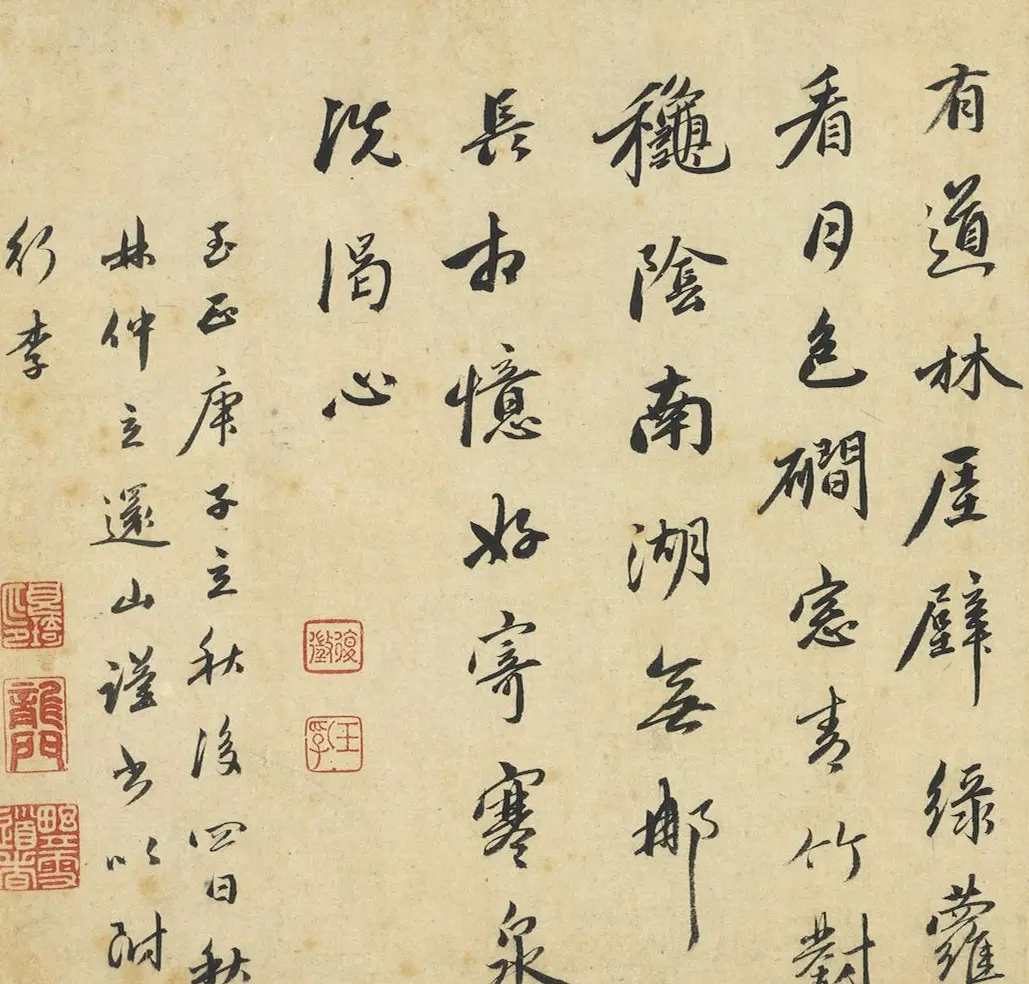 有道林屋壁綠蘿
看月色磵窻青竹對
龝陰南湖無那
長相憶好寄寒泉
洗渴心
至正庚子立秋後四日秋
林仲立還山謹書以附
行李
龍門